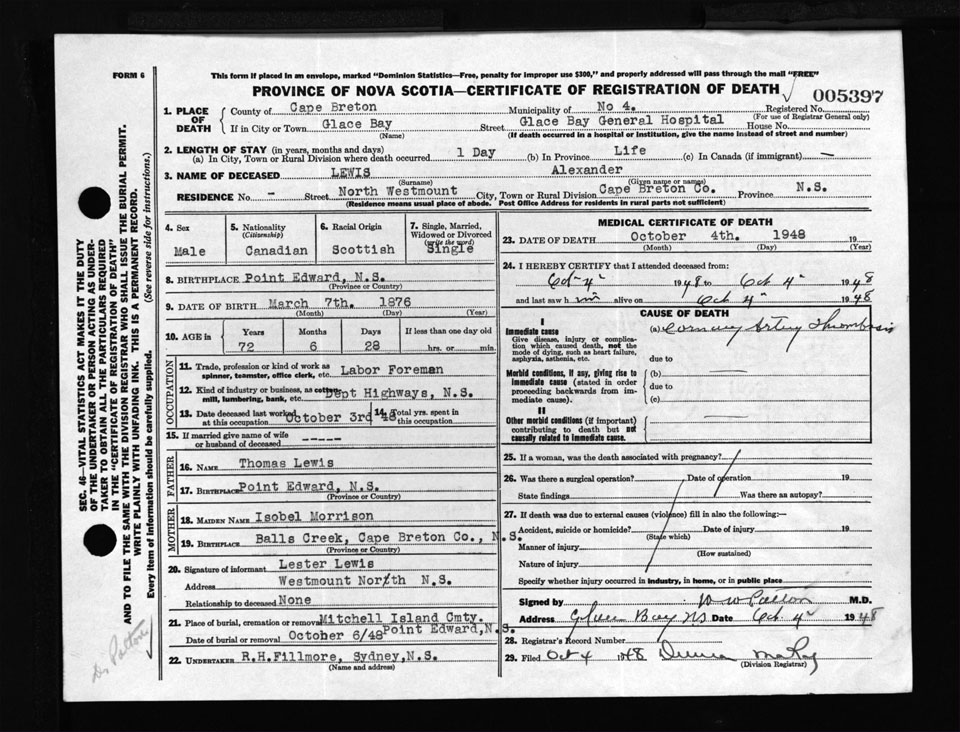 FORM 6
This form if placed in an envelope, marked "Dominion Statistics—Free, penalty for improper use $300," and properly addressed will pass through the mail "FREE"
PROVINCE OF NOVA SCOTIA—CERTIFICATE OF REGISTRATION OF DEATH
005397
1. PLACE OF DEATH
County of Cape Breton Municipality of No 4. Registered No.
(For use of Registrar General only)
If in City or Town Glace Bay Street Glace Bay General Hospital House No.
(Name) (If death occurred in a hospital or institution, give the name instead of street and number)
2. LENGTH OF STAY (in years, months and days)
(a) In City, Town or Rural Division where death occurred 1 Day (b) In Province Life (c) In Canada (if immigrant) —
3. NAME OF DECEASED LEWIS Alexander
(Surname) (Given name or names)
RESIDENCE No. - Street North Westmount City, Town or Rural Division Cape Breton Co. Province N.S.
(Residence means usual place of abode. Post Office Address for residents in rural parts not sufficient)
4. Sex
Male
5. Nationality
(Citizenship)
Canadian
6. Racial Origin
Scottish
7. Single, Married, Widowed or Divorced
(write the word)
Single
8. BIRTHPLACE Point Edward, N.S.
(Province or Country)
9. DATE OF BIRTH March 7th. 1876
(Month) (Day) (Year)
10. AGE in Years Months Days If less than one day old
72 6 28 hrs. or min.
OCCUPATION
11. Trade, profession or kind of work as spinner, teamster, office clerk, etc. Labor Foreman
12. Kind of industry or business, as cotton mill, lumbering, bank, etc. Dept Highways, N.S.
13. Date deceased last worked at this occupation October 3rd 48
14. Total yrs. spent in this occupation
15. If married give name of wife or husband of deceased -----
FATHER
16. NAME Thomas Lewis
17. BIRTHPLACE Point Edward, N.S.
(Province or Country)
MOTHER
18. MAIDEN NAME Isobel Morrison
19. BIRTHPLACE Balls Creek, Cape Breton Co., N.S.
(Province or Country)
20. Signature of informant Lester Lewis
Address Westmount North N.S.
Relationship to deceased None
21. Place of burial, cremation or removal Mitchell Island Cmty.
Point Edward, N.S.
Date of burial or removal October 6/48
22. UNDERTAKER R.H.Fillmore, Sydney, N.S.
(Name and address)
MEDICAL CERTIFICATE OF DEATH
23. DATE OF DEATH October 4th. 1948 19
(Month) (Day) (Year)
24. I HEREBY CERTIFY that I attended deceased from:
Oct 4 1948 to Oct 4 1948
and last saw him alive on Oct 4 1948
CAUSE OF DEATH
I
Immediate cause
Give disease, injury or complication which caused death, not the mode of dying, such as heart failure, asphyxia, asthenia, etc.
(a) Coronary Artery Thrombosis
due to
Morbid conditions, if any, giving rise to immediate cause (stated in order proceeding backwards from immediate cause).
(b)
due to
(c)
II
Other morbid conditions (if important) contributing to death but not causally related to immediate cause.
25. If a woman, was the death associated with pregnancy?
26. Was there a surgical operation? Date of operation 19
State findings Was there an autopsy?
27. If death was due to external causes (violence) fill in also the following:—
Accident, suicide or homicide? Date of injury 19
(State which)
Manner of injury
(How sustained)
Nature of injury
Specify whether injury occurred in industry, in home, or in public place
Signed by W W Patton M.D.
Address Glace Bay NS Date Oct 4 1948
28. Registrar's Record Number
29. Filed Oct 4 1948
(Division Registrar)
SEC. 46—VITAL STATISTICS ACT MAKES IT THE DUTY
OF THE UNDERTAKER OR PERSON ACTING AS UNDER-
TAKER TO OBTAIN ALL THE PARTICULARS REQUIRED
IN THE "CERTIFICATE OF REGISTRATION OF DEATH"
AND TO FILE THE SAME WITH THE DIVISION REGISTRAR WHO SHALL ISSUE THE BURIAL PERMIT.
WRITE PLAINLY WITH UNFADING INK. THIS IS A PERMANENT RECORD.
Every item of information should be carefully supplied. (See reverse side for instructions.)
Dr Patton